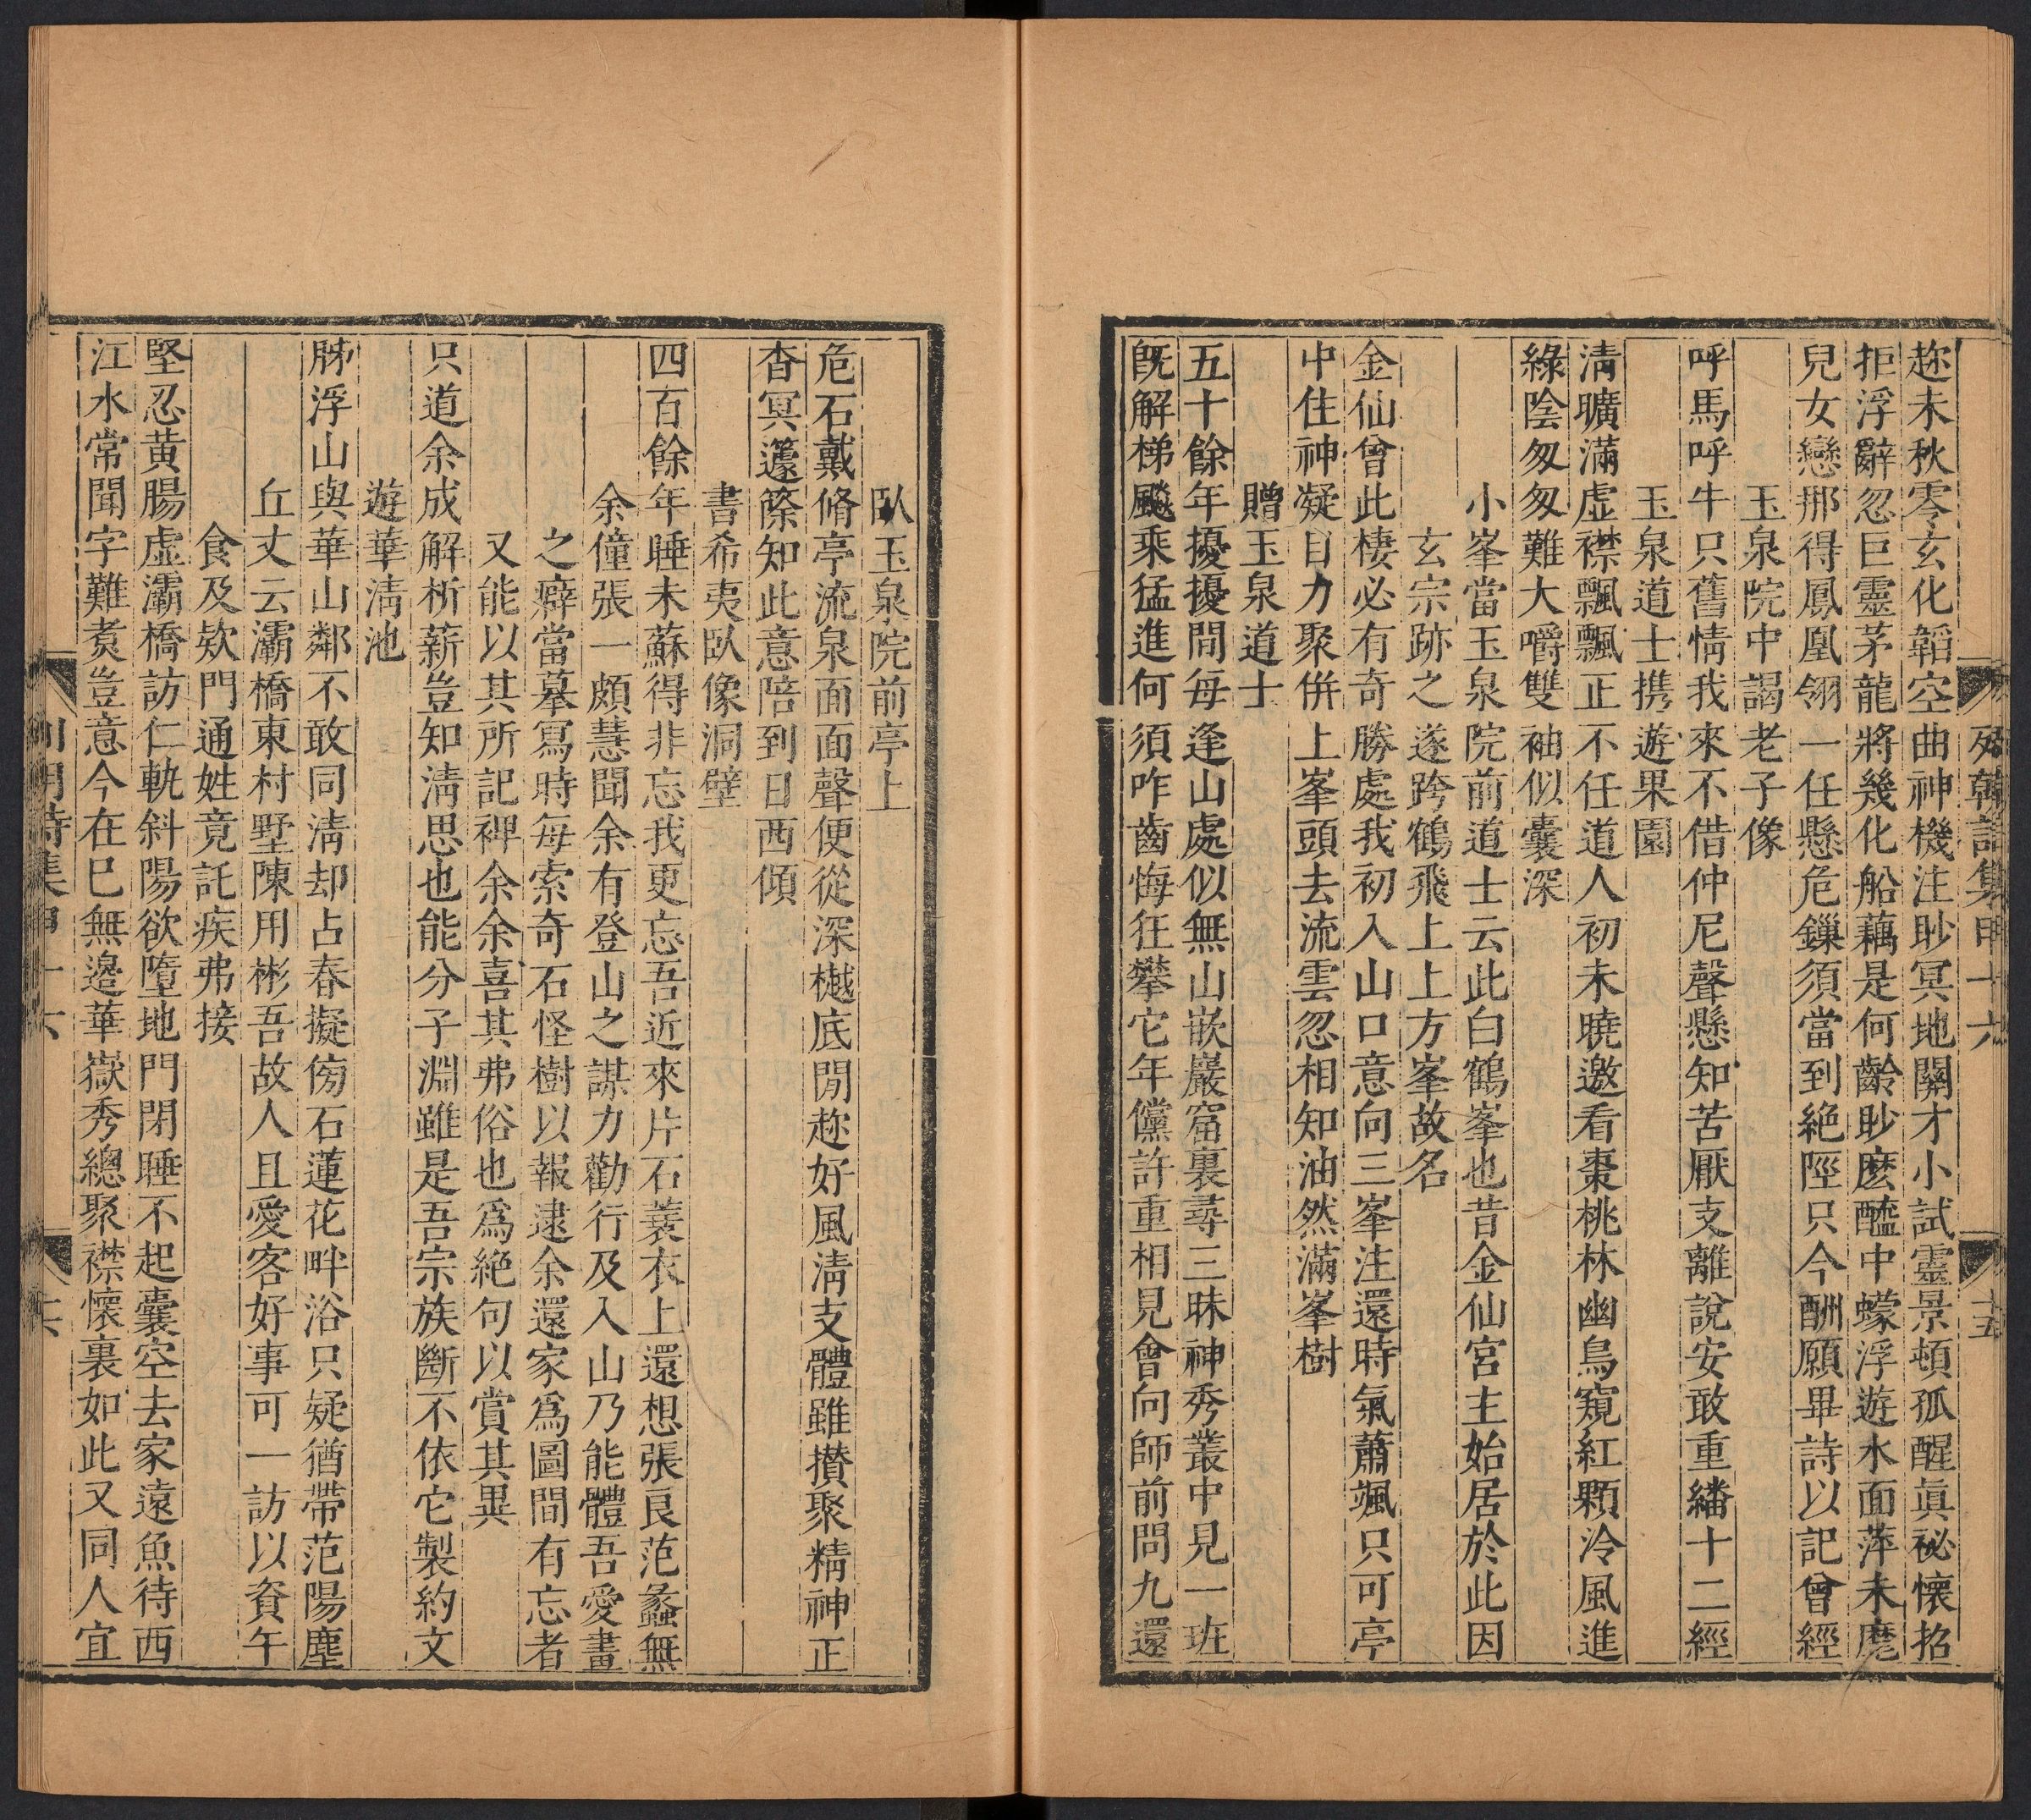 趂未秋零玄化韜空曲神機注眇冥地關才小試靈景頓孤醒眞祕懷招
拒浮辭忽巨靈茅龍將幾化船藕是何齡眇麽醯中蠓浮遊水面萍未麾
兒女戀那得鳳凰翎一任懸危鏁須當到絶陘只今酬願畢詩以記曾經
玉泉院中謁老子像
呼馬呼牛只舊情我來不借仲尼聲懸知苦厭支離說安敢重繙十二經
玉泉道士携遊果園
淸曠滿虛襟飄飄正不任道人初未曉邀看棗桃林幽鳥窺紅顆冷風進
綠陰匆匆難大嚼雙袖似囊深
小峯當玉泉院前道士云此白鶴峯也昔金仙宮主始居於此因
玄宗跡之遂跨鶴飛上上方峯故名
金仙曾此棲必有奇勝處我初入山口意向三峯注還時氣蕭颯只可亭
中住神凝目力聚倂上峯頭去流雲忽相知油然滿峯樹
贈玉泉道士
五十餘年擾擾間每逢山處似無山嵌巖窟裏尋三昧神秀叢中見一班
旣解梯飈乘猛進何須咋齒悔狂攀它年儻許重相見會向師前問九還
臥玉泉院前亭上
危石戴脩亭流泉面面聲便從深樾底閒趂好風淸支體雖攅聚精神正
杳冥籧篨知此意陪到日西傾
書希夷臥像洞壁
四百餘年睡未蘇得非忘我更忘吾近來片石蓑衣上還想張良范蠡無
余僮張一頗慧聞余有登山之謀力勸行及入山乃能體吾愛畫
之癖當摹寫時每索奇石怪樹以報逮余還家爲圖間有忘者
又能以其所記裨余余喜其弗俗也爲絶句以賞其異
只道余成解析薪豈知淸思也能分子淵雖是吾宗族斷不依它製約文
遊華淸池
肺浮山與華山鄰不敢同淸却占春擬傍石蓮花畔浴只疑猶帶范陽塵
丘丈云灞橋東村墅陳用彬吾故人且愛客好事可一訪以資午
食及欵門通姓竟託疾弗接
堅忍黃腸虛灞橋訪仁軌斜陽欲墮地門閉睡不起囊空去家遠魚待西
江水常聞字難煑豈意今在巳無邊華嶽秀總聚襟懷裏如此又同人宜